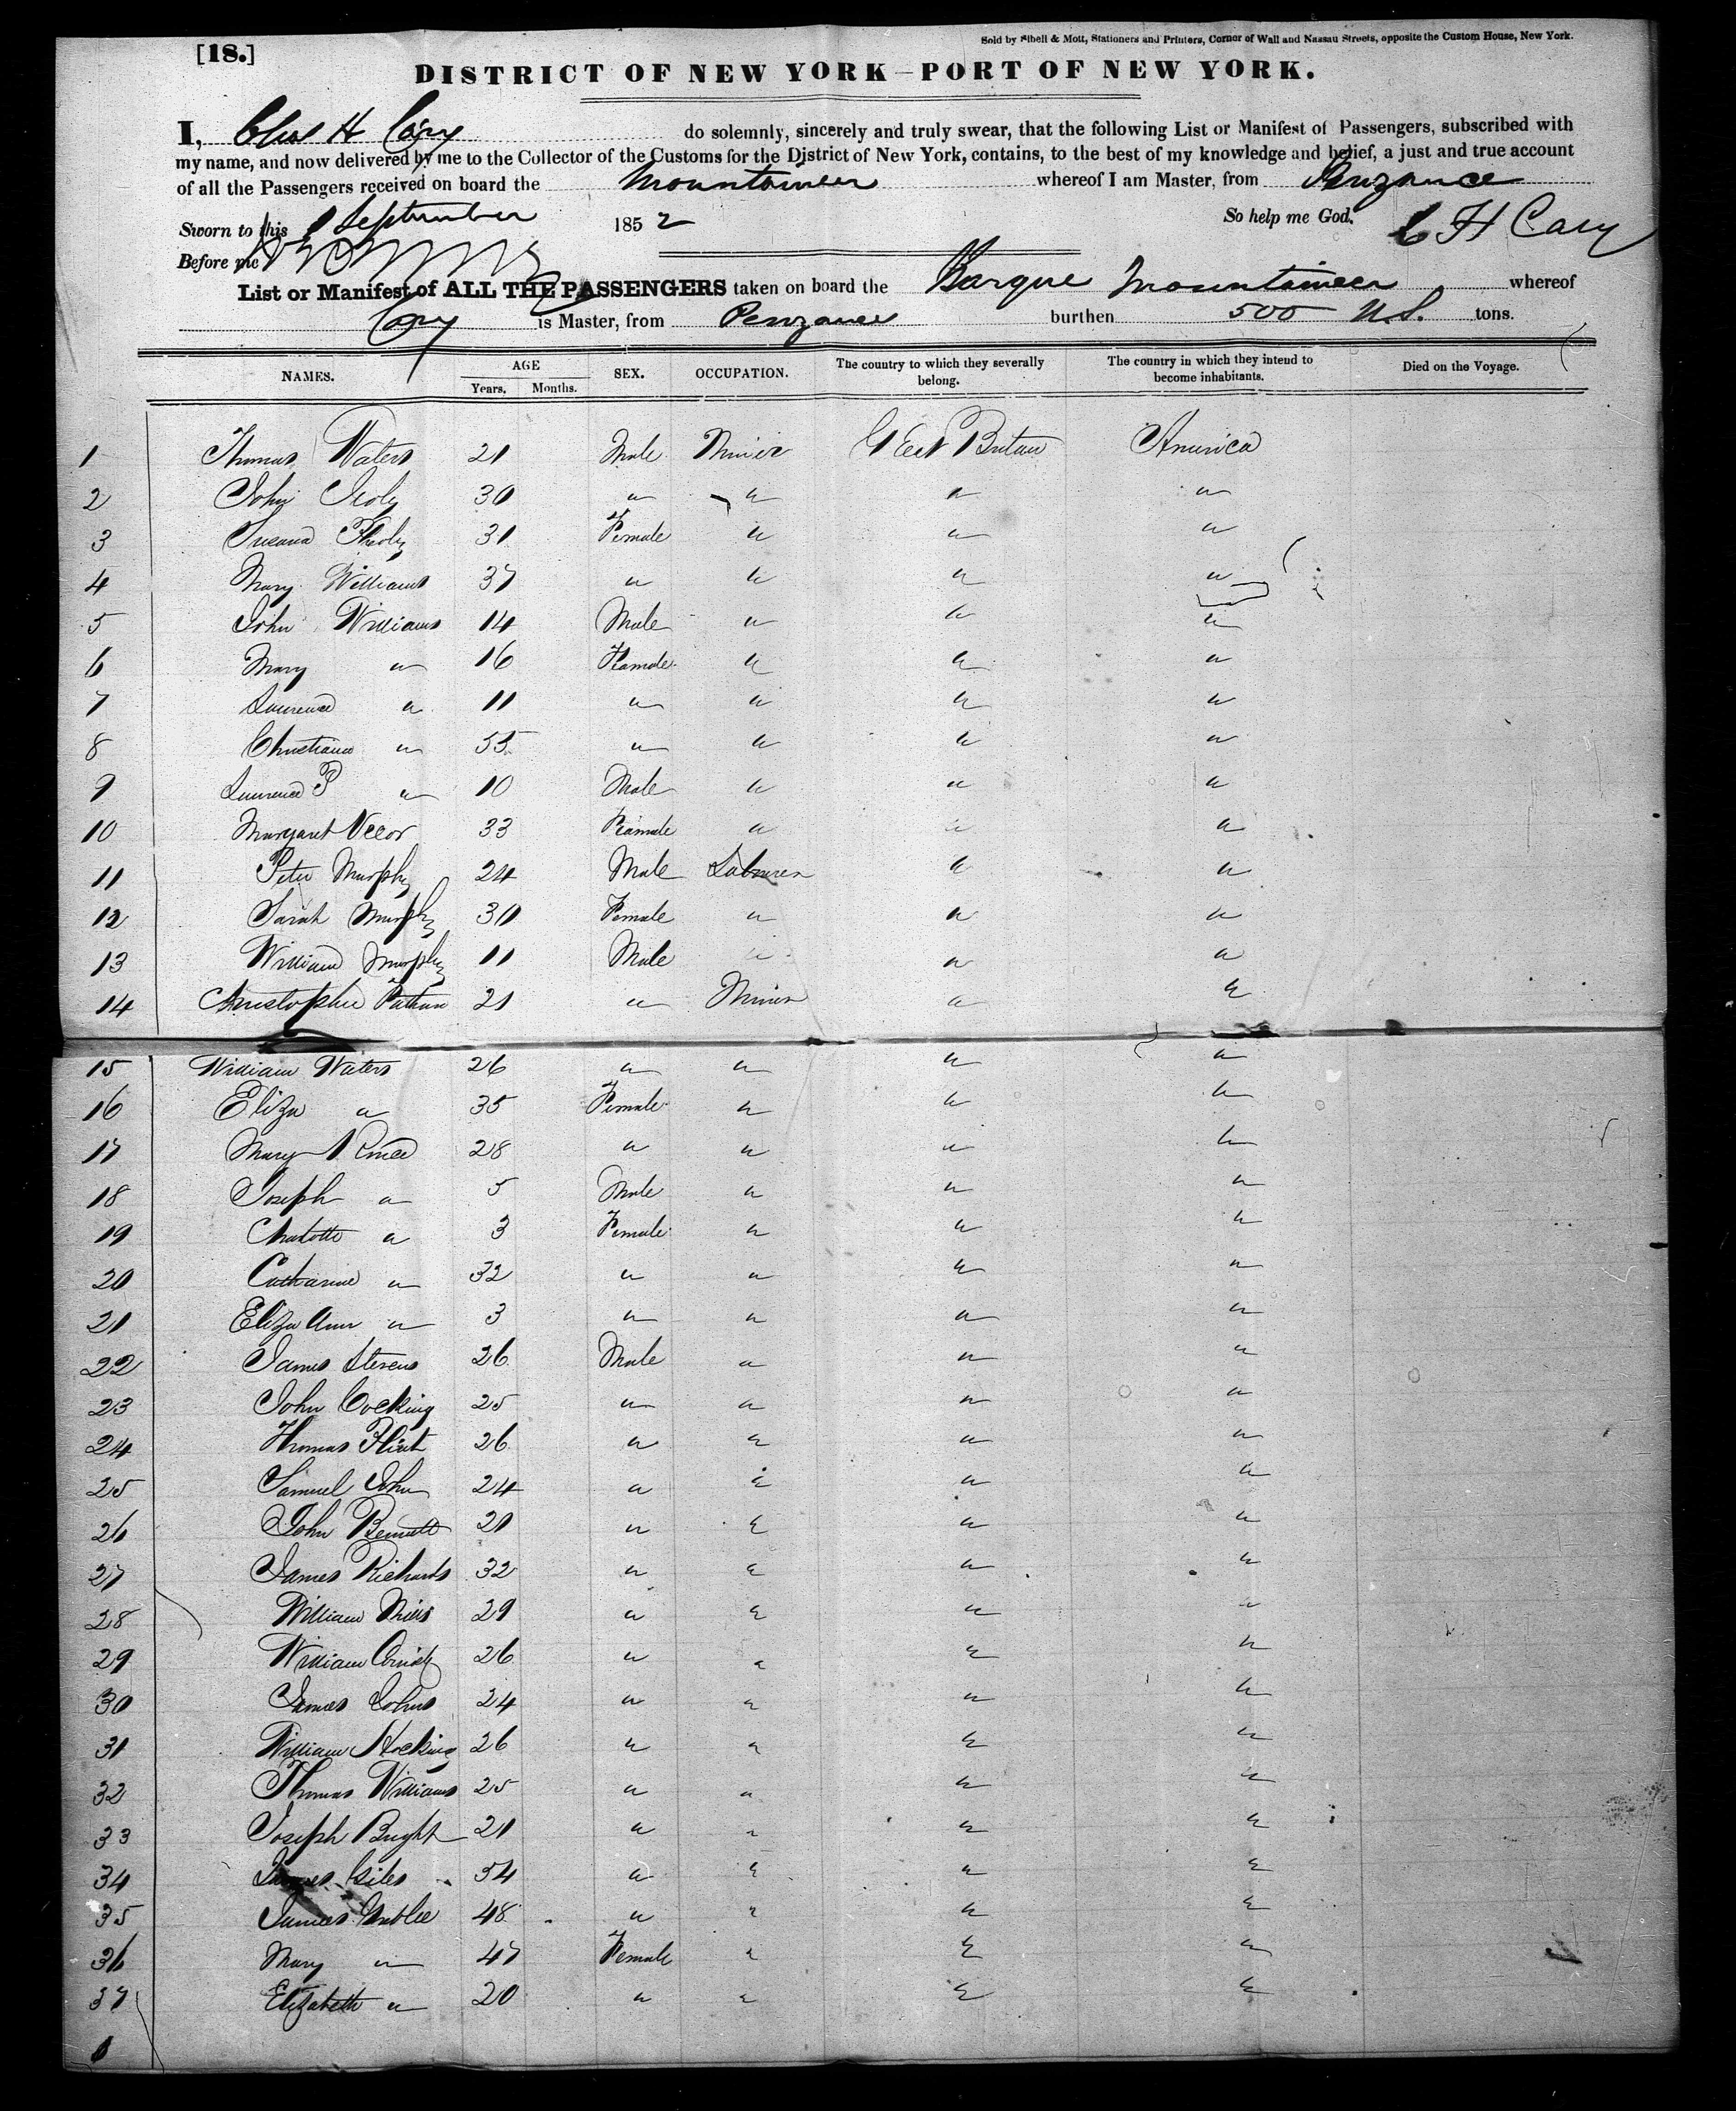 [18.]
Sold by Sibell & Mott, Stationers and Printers, Corner of Wall and Nassau Streets, opposite the Custom House, New York.
DISTRICT OF NEW YORK—PORT OF NEW YORK.
I, Chas H Cary do solemnly, sincerely and truly swear, that the following List or Manifest of Passengers, subscribed with
my name, and now delivered by me to the Collector of the Customs for the District of New York, contains, to the best of my knowledge and belief, a just and true account
of all the Passengers received on board the Mountaineer whereof I am Master, from Penzance
Sworn to this 1 September 1852 So help me God. C H Cary
Before me
List or Manifest of ALL THE PASSENGERS taken on board the Barque Mountaineer whereof
Cary is Master, from Penzance burthen 500 U.S. tons.
NAMES. AGE Years. Months. SEX. OCCUPATION. The country to which they severally belong. The country in which they intend to become inhabitants. Died on the Voyage.
1 Thomas Waters 21 Male Miner Great Britain America
2 John 30 " " " "
3 31 Female " " "
4 Mary Williams 37 " " " "
5 John Williams 14 Male " " "
6 Mary " 16 Female " " "
7 " 11 " " " "
8 Christiana " 55 " " " "
9 P " 10 Male " " "
10 Margaret 33 Female " " "
11 Peter Murphy 24 Male Labourer " "
12 Sarah Murphy 30 Female " " "
13 William Murphy 11 Male " " "
14 Christopher 21 " Miner " "
15 William Waters 26 " " " "
16 Eliza " 35 Female " " "
17 Mary 28 " " " "
18 Joseph " 5 Male " " "
19 Charlotte " 3 Female " " "
20 Catharine " 32 " " " "
21 Eliza Ann " 3 " " " "
22 James Stevens 26 Male " " "
23 John Cocking 25 " " " "
24 Thomas 26 " " " "
25 Samuel John 24 " " " "
26 John Bennett 21 " " " "
27 James Richards 32 " " " "
28 William 29 " " " "
29 William 26 " " " "
30 James Johns 24 " " " "
31 William Hocking 26 " " " "
32 Thomas Williams 25 " " " "
33 Joseph Bright 21 " " " "
34 James Giles 54 " " " "
35 James 48 " " " "
36 Mary " 47 Female " " "
37 Elizabeth " 20 " " " "